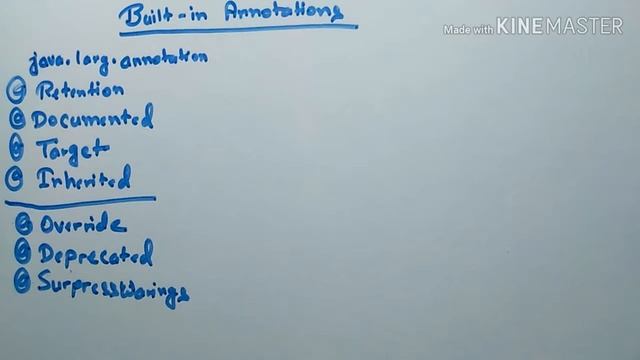 Built-in Annotations
Made with KINEMASTER
java.lang.annotation
@ Retention
@ Documented
@ Target
@ Inherited
@ Override
@ Deprecated
@ SurpressWarings